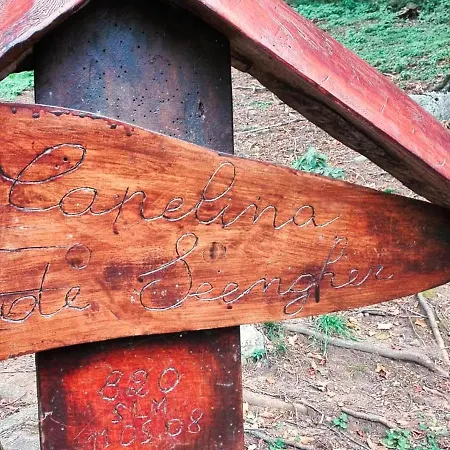 Capelina
de Seengher
880
SLM
11 05 08